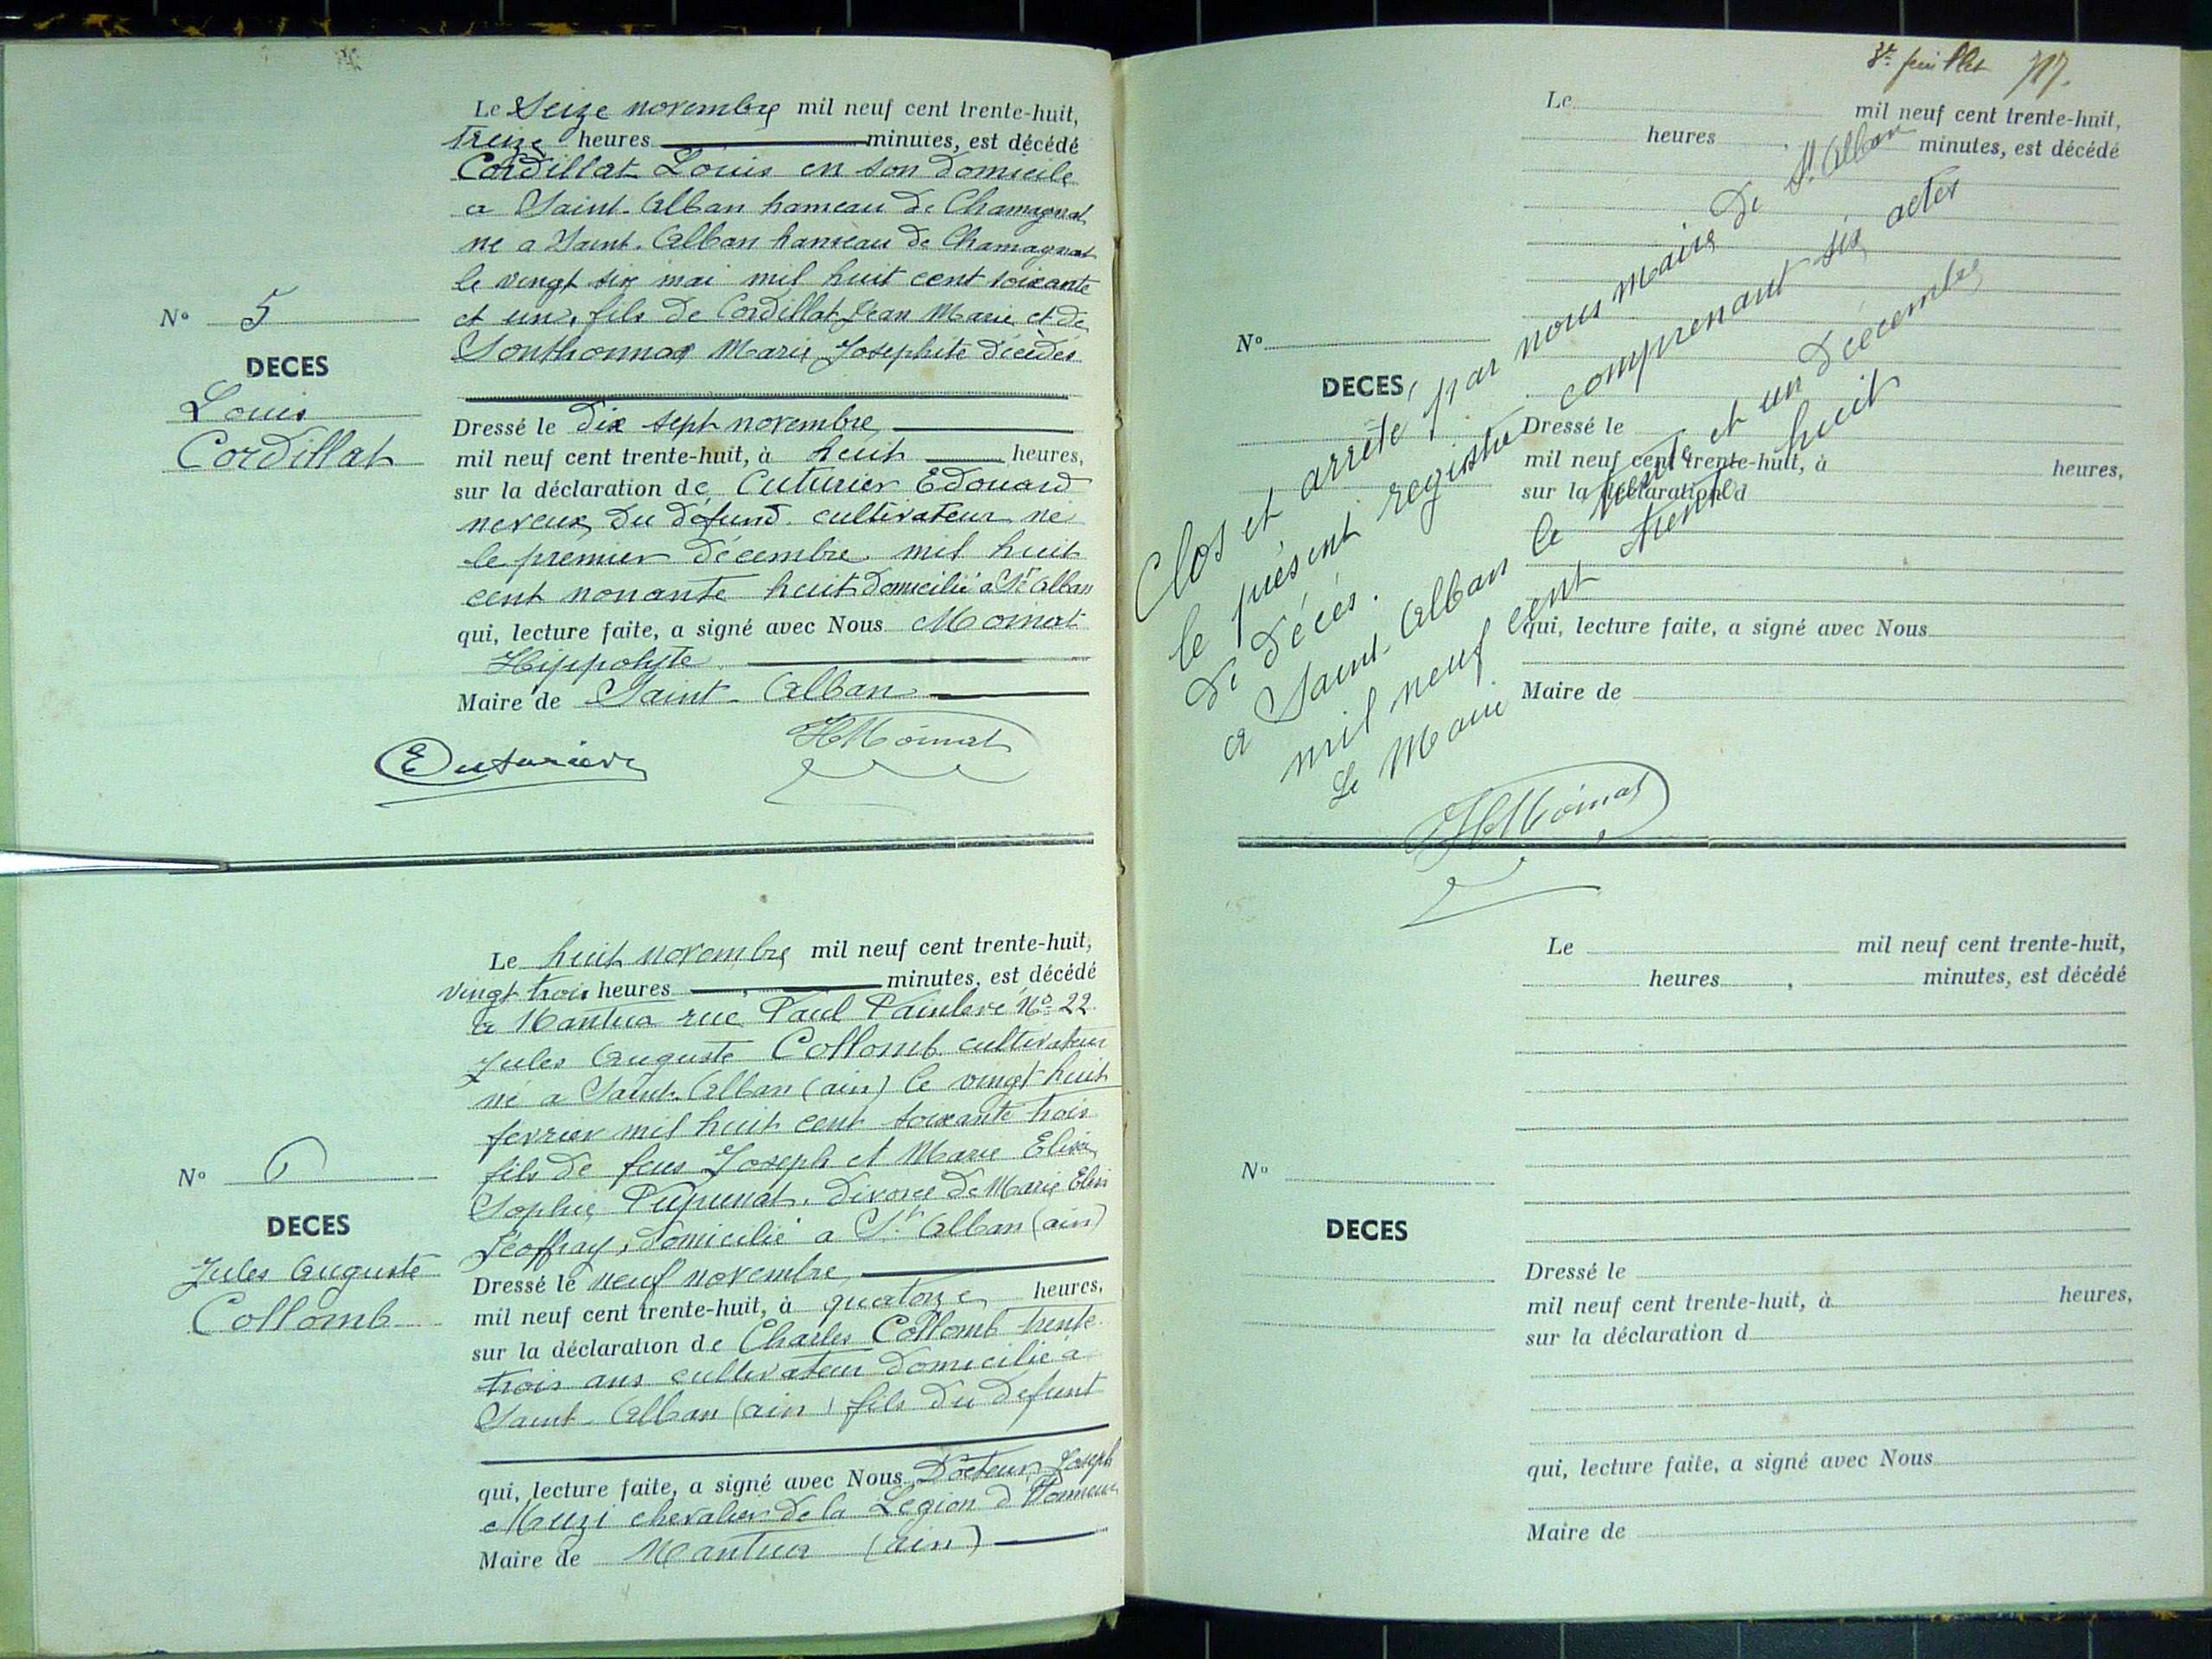 Le Seize novembre mil neuf cent trente-huit,
treize heures minutes, est décédé
Cordillat Louis en son domicile
a Saint-Alban hameau de Chamagnat
né a Saint-Alban hameau de Chamagnat
le vingt six mai mil huit cent soixante
et un, fils de Cordillat Jean Marie et de
Southonnax Marie Josephite décédés
Nº 5
DECES
Louis
Cordillat
Dressé le dix sept novembre
mil neuf cent trente-huit, à huit heures,
sur la déclaration de Cuturier Edouard
neveux du défund cultivateur né
le premier décembre mil huit
cent nonante huit domicilié a St Alban
qui, lecture faite, a signé avec Nous Moinat
Hippolyte
Maire de Saint-Alban
ECuturier HMoinat
Le huit novembre mil neuf cent trente-huit,
vingt trois heures , minutes, est décédé
a Nantua rue Paul Painlevé Nº 22
Jules Auguste Collomb cultivateur
né a Saint-Alban (ain) le vingt huit
fevrier mil huit cent soixante trois
fils de feus Joseph et Marie Elisa
Sophie Pupunat. divorcé de Marie Elisa
Jeoffray, domicilié a St Alban (ain)
Nº 6
DECES
Jules Auguste
Collomb
Dressé le neuf novembre
mil neuf cent trente-huit, à quatorze heures,
sur la déclaration de Charles Collomb trente
trois ans cultivateur domicilié a
Saint-Alban (ain) fils du defunt
qui, lecture faite, a signé avec Nous Docteur Joseph
Muzi chevalier de la Legion d'Honneur
Maire de Nantua (ain)
3e feuillet
Le mil neuf cent trente-huit,
heures , minutes, est décédé
Nº
DECES
Dressé le
mil neuf cent trente-huit, à heures,
sur la déclaration d
qui, lecture faite, a signé avec Nous
Maire de
Clos et arrêté par nous maire de St Alban
le présent registre comprenant six actes
de décès.
a Saint-Alban le trente et un décembre
mil neuf cent trente huit
Le Maire
HMoinat
Le mil neuf cent trente-huit,
heures , minutes, est décédé
Nº
DECES
Dressé le
mil neuf cent trente-huit, à heures,
sur la déclaration d
qui, lecture faite, a signé avec Nous
Maire de